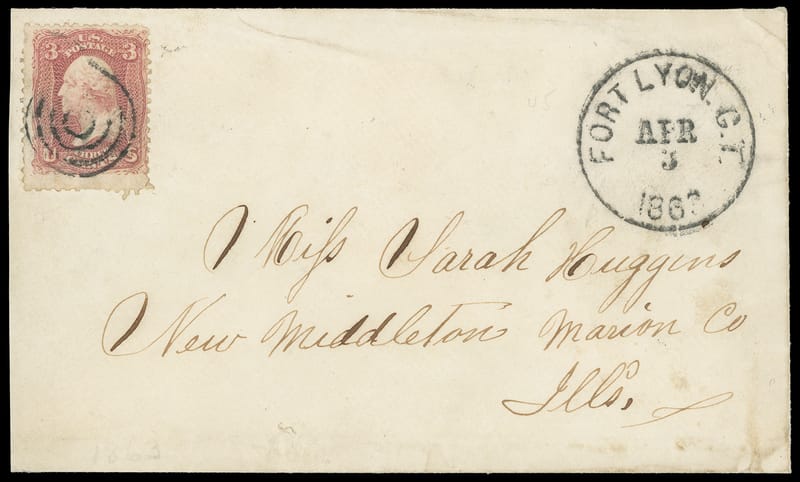 3 U.S. 3
POSTAGE
FORT LYON. C.T.
APR
3
186
Miss Sarah Huggins
New Middleton Marion Co
Ills.